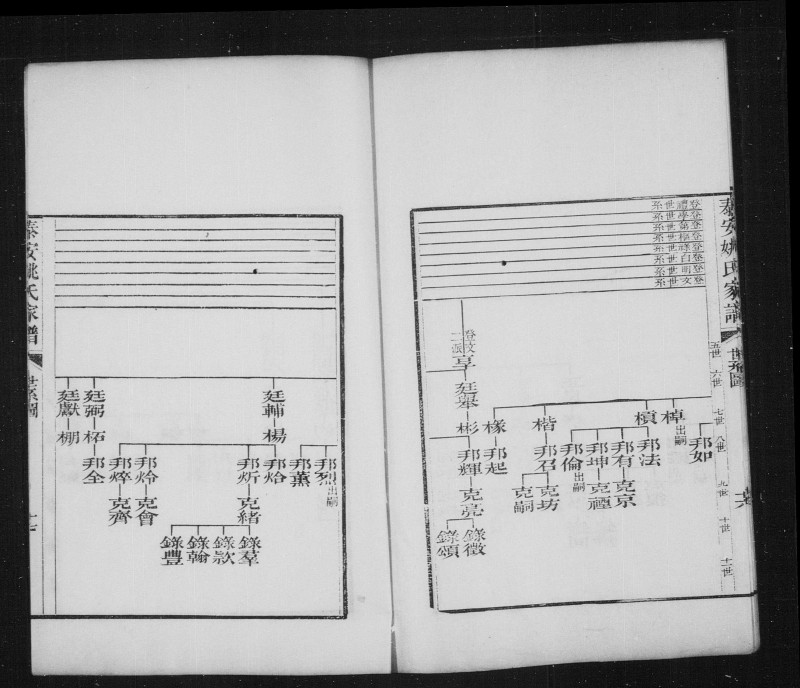 泰安姚氏家譜
世系圖
五世
六世
七世
八世
九世
十世
十一世
登禮世系
登學世系
登第世系
登極世系
登祿世系
登白世系
登明世系
登文世系
登文二派
享
廷舉
彬
邦輝
克亮
錄徵
錄頌
邦如
樟出嗣
檳
邦法
邦有
克京
邦坤
克禋
邦倫出嗣
楷
邦召
克坊
克嗣
椽
邦起
邦烈出嗣
邦薰
廷輔
楊
邦炲
邦炘
克緒
錄羣
錄欵
錄翰
錄豐
邦炩
克會
邦焠
克齊
廷弼
柘
邦全
廷獻
棚
泰安姚氏家譜
世系圖